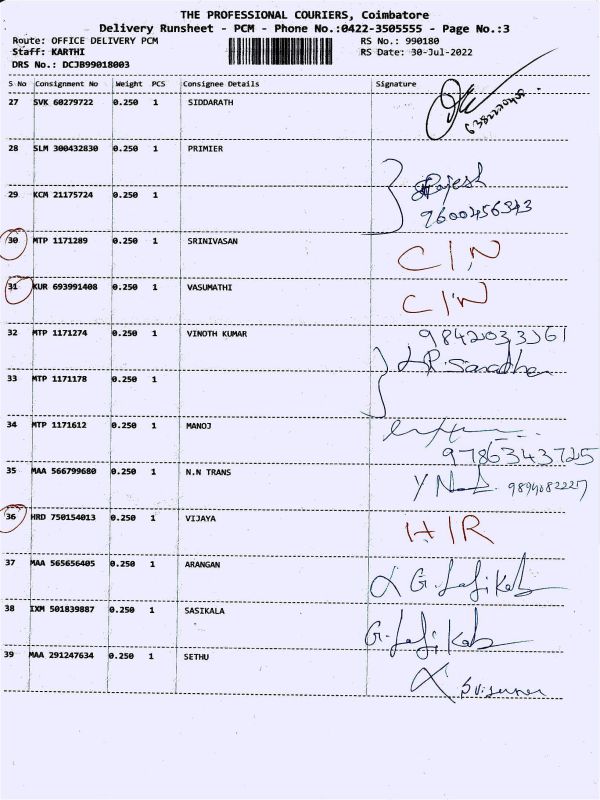 THE PROFESSIONAL COURIERS, Coimbatore
Delivery Runsheet - PCM - Phone No.:0422-3505555 - Page No.:3
Route: OFFICE DELIVERY PCM RS No.: 990180
Staff: KARTHI RS Date: 30-Jul-2022
DRS No.: DCJB99018003
S No Consignment No Weight PCS Consignee Details Signature
27 SVK 60279722 0.250 1 SIDDARATH
28 SLM 300432830 0.250 1 PRIMIER
Rajesh
29 KCM 21175724 0.250 1
9600456343
30 MTP 1171289 0.250 1 SRINIVASAN C/N
31 KUR 693991408 0.250 1 VASUMATHI C/N
32 MTP 1171274 0.250 1 VINOTH KUMAR 9842033361
33 MTP 1171178 0.250 1
34 MTP 1171612 0.250 1 MANOJ
9786343725
35 MAA 566799680 0.250 1 N.N TRANS 9894082227
36 HRD 750154013 0.250 1 VIJAYA H/R
37 MAA 565656405 0.250 1 ARANGAN
38 IXM 501839887 0.250 1 SASIKALA
39 MAA 291247634 0.250 1 SETHU